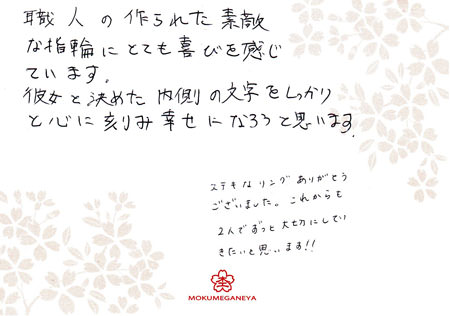 職人の作られた素敵
な指輪にとても喜びを感じ
ています。
彼女と決めた内側の文字をしっかり
と心に刻み幸せになろうと思います。
ステキなリングありがとう
ございました。これからも
2人でずっと大切にしてい
きたいと思います!!
MOKUMEGANEYA